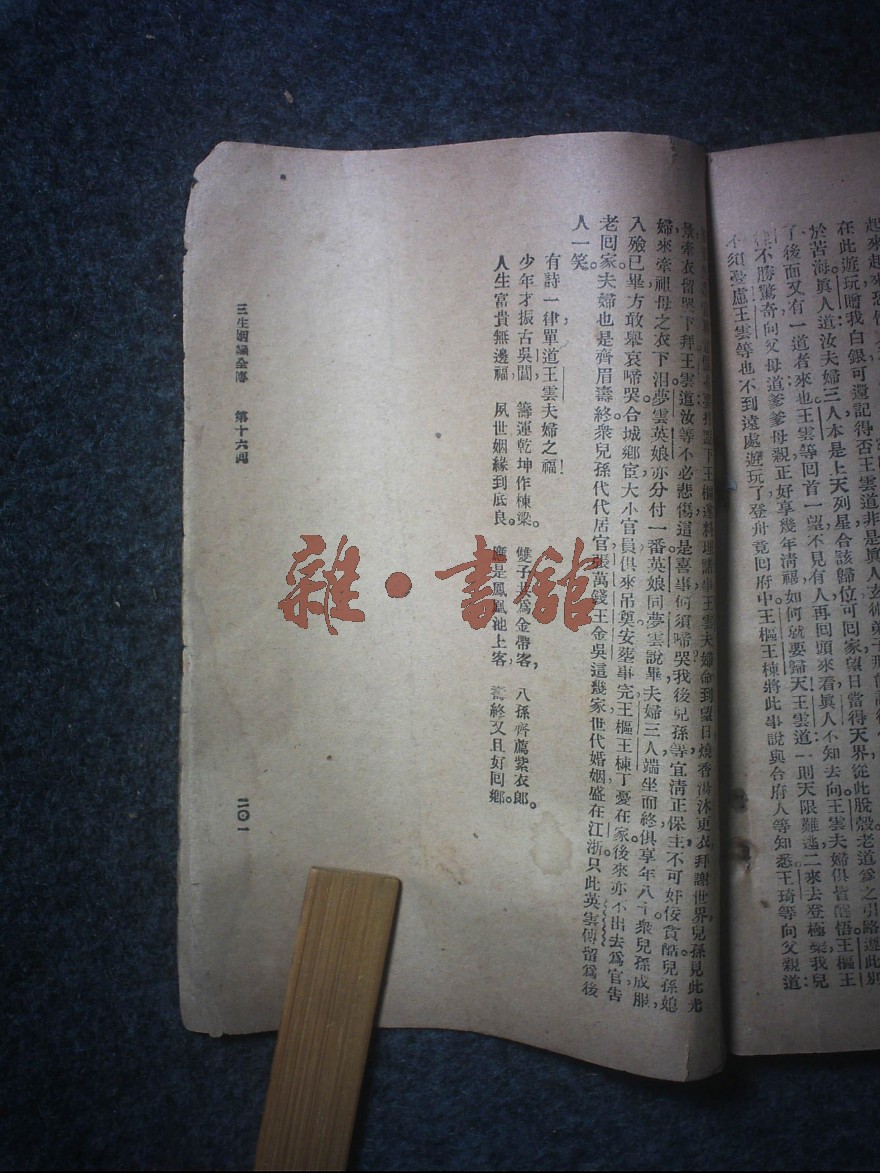 起來起來恐
在此遊玩贈我白銀可還記得否王雲道非是真人玄術弟子
於苦海眞人道汝夫婦三人本是上天列星合該歸位可回家望日當得天界從此脫殼老道爺之引路還此別
了後面又有一道者來也王雲等回首一望不見有人再回頭來看眞人不知去向王雲夫婦俱皆醒悟王樞王
不勝驚奇向父母道爹爹母親正好享幾年清福如何就要歸天王雲道一則天限難逃二來去登極樂我兒
不須憂慮王雲等也不到遠處遊玩了登舟竟回府中王樞王棟將此事說與合府人等知悉王琦等向父親道
下王樞遂料理諸事王雲夫婦命到望日燒香湯沐更衣拜謝世界兒孫見此光
景牽衣留哭下拜王雲道汝等不必悲傷這是喜事何須啼哭我後兒孫等宜清正保主不可奸佞貪酷兒孫媳
婦來牽祖母之衣下淚夢雲英娘亦分付一番英娘同夢雲說畢夫婦三人端坐而終俱享年八十衆兒孫成服
入殮已畢方敢舉哀啼哭合城鄉宦大小官員俱來吊奠安塟事完王樞王棟丁憂在家後來亦不出去爲官告
老回家夫婦也是齊眉壽終衆兒孫代代居官張萬錢王金吳這幾家世代婚姻盛在江浙只此英雲傳留爲後
人一笑
有詩一律單道王雲夫婦之福
少年才振古吳閶　籌運乾坤作棟梁。　雙子共爲金帶客，　八孫齊薦紫衣郎。
人生富貴無邊福　夙世姻緣到底良。　應是鳳凰池上客　壽終又且好回鄉。
三生姻緣全傳　第十六回　二〇一
雜·書館